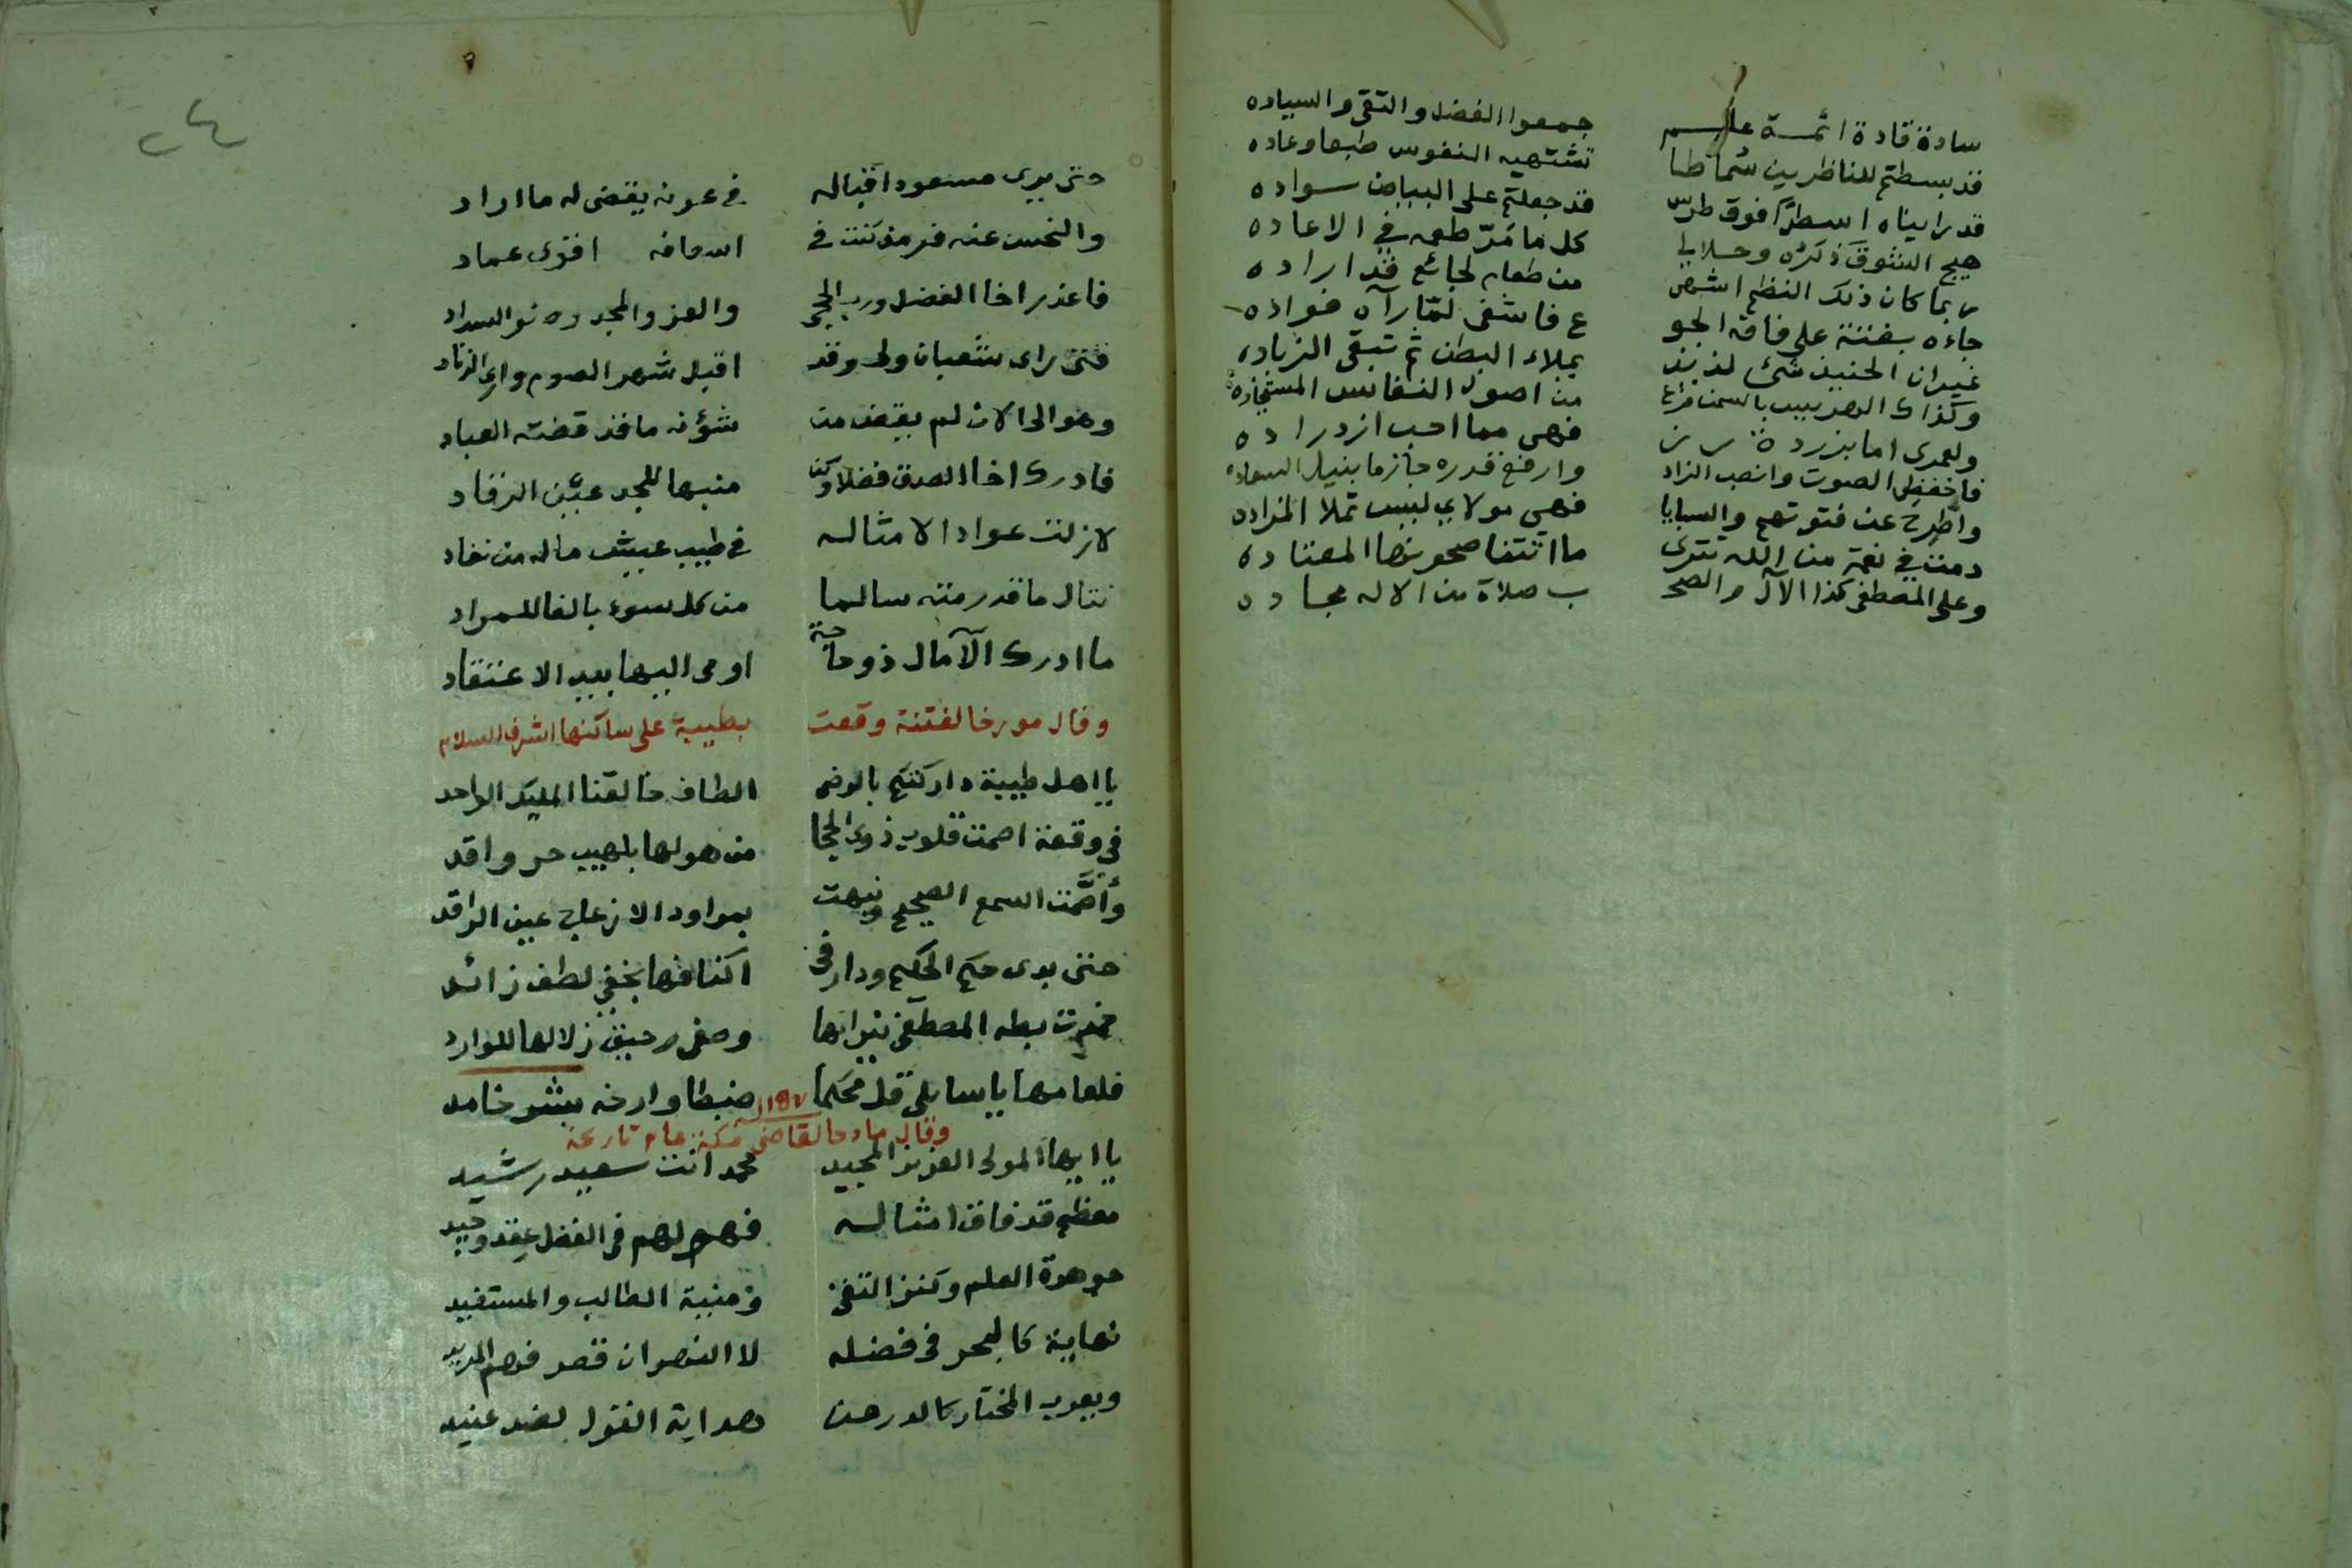 سادة قادة ائمة علم جمعوا الفضل والتقى والسياده
قد بسطتم للناظرين سماطا تشتهيه النفوس طبعا وعاده
قد راينا اسطرا فوق طرس قد جعلتم على البياض سواده
هيج الشوق ذكره وحلا لي كل ما مر طعمه في الاعاده
ربما كان ذلك النظم اشهى من طعام لجائع قد اراده
جاءه بغتة على فاقة الجو ع فاشفى لما رآه فواده
غير ان الحنيذ شئ لذيذ يملاء البطن ثم تبقى الزياده
وكذاك الهزبيب بالسمن من اصول النفائس المستجاده
ولعمرى اما بزردة رز فهي مما احب ازدراده
فاخفض الصوت وانصب الزاد وارفع قدره جازما بنيل السعاده
واطرح عن فتوتهم والسبايا فهي مولاي ليس تملا المزاده
دمت في نعمة من الله تترى ما انثنا صحو بنها المعتاده
وعلى المصطفى كذا الآل والصح ب صلاة من الاله مجاده
٢٤
حتى يرى مسعود اقباله في عونه يقضى له ما اراد
والنحس عنه فر مذ كنت في اسعافه اقوى عماد
فاعذر اخا الفضل ورب الحجى والعز والمجد وذو السداد
فتى راى شعبان ولى وقد اقبل شهر الصوم وارى الزناد
وهو الى الان لم يقض من شؤنه ما قد قضته العباد
فادرك اخا الصدق فضلا وكن منبها للمجد عين الرقاد
لا زلت عوادا لامثاله في طيب عيش ماله من نفاد
تنال ما قد رمته سالما من كل سوء بالغا للمراد
ما ادرك الآمال ذو حاجة اومى اليها بيد الاعتقاد
وقال مورخا لفتنة وقعت بطيبة على ساكنها اشرف السلام
يا اهل طيبة داركتكم بالرضى الطاف خالقنا المليك الواحد
في وقعة اصمت قلوب ذوى الحجا من هولها بلهيب حر واقد
وأصمت السمع الصحيح ونبهت بمراود الازعاج عين الراقد
حتى بدى حكم الحكيم ودار في اكنافها بخفي لطف زائد
خمدت بطه المصطفى نيرانها وصفى رحيق زلالها للوارد
فلعامها يا سايلى قل محكما ضبطا وارخه بشر خامد
وقال مادحا لقاضى مكة عام تاريخه
يا ايها المولى العزيز المجيد محمد انت سعيد رشيد
معظم قد فاق امثاله فهو لهم في الفضل عقد وحيد
جوهرة العلم وكنز التقى ومنية الطالب والمستفيد
نهاية كالبحر في فضله لا النهر ان قصر فهم المريد
وبعرب المختار كالدر من هداية القول لضد عنيد